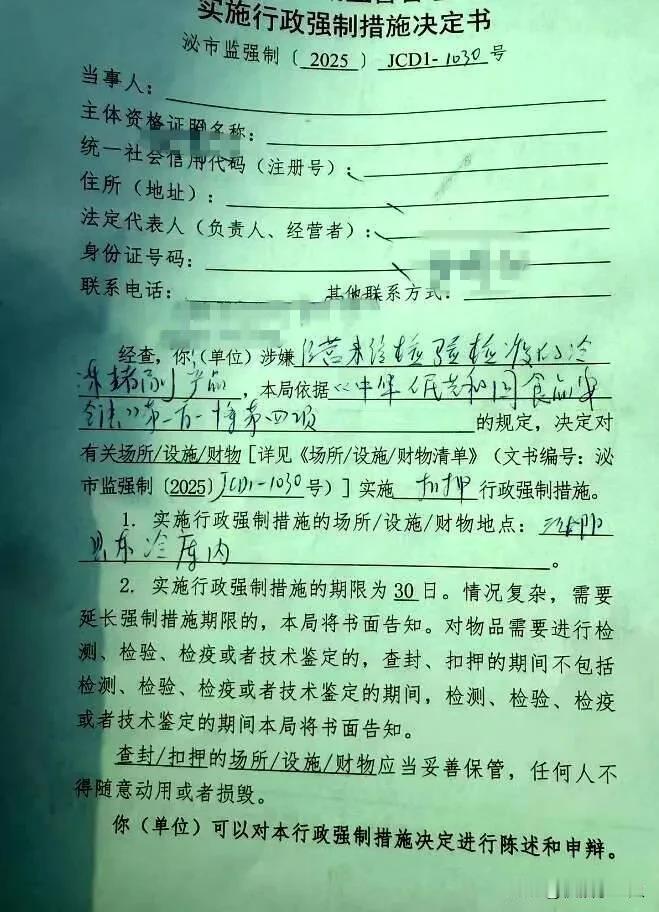 实施行政强制措施决定书
泌市监强制〔2025〕JCD1-1030号
当事人：
主体资格证照名称：
统一社会信用代码（注册号）：
住所（地址）：
法定代表人（负责人、经营者）：
身份证号码：
联系电话： 其他联系方式：
经查，你（单位）涉嫌 经营未经检验检疫的冷
冻猪副产品，本局依据《中华人民共和国食品安
全法》第一百一十条第四项 的规定，决定对
有关场所/设施/财物［详见《场所/设施/财物清单》（文书编号：泌
市监强制〔2025〕JCD1-1030号）］实施 扣押 行政强制措施。
1. 实施行政强制措施的场所/设施/财物地点：泌阳
县 冷库内。
2. 实施行政强制措施的期限为30日。情况复杂，需要
延长强制措施期限的，本局将书面告知。对物品需要进行检
测、检验、检疫或者技术鉴定的，查封、扣押的期间不包括
检测、检验、检疫或者技术鉴定的期间，检测、检验、检疫
或者技术鉴定的期间本局将书面告知。
查封/扣押的场所/设施/财物应当妥善保管，任何人不
得随意动用或者损毁。
你（单位）可以对本行政强制措施决定进行陈述和申辩。